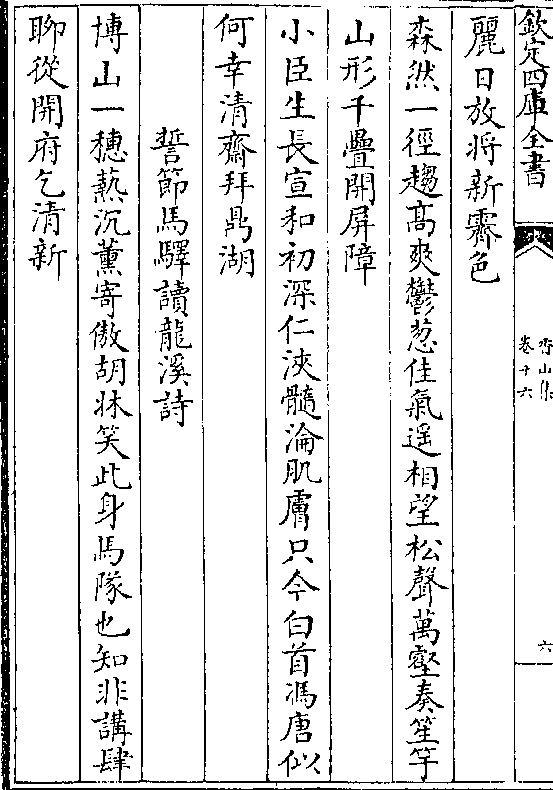 欽定四庫全書
香山集
卷十六
六
麗日放將新霽色
森然一徑趨高爽鬱葱佳氣遥相望松聲萬壑奏笙竽
山形千疊開屏障
小臣生長宣和初深仁浹髓淪肌膚只今白首馮唐似
何幸清齋拜鼎湖
誓節馬驛讀龍溪詩
博山一穗爇沉薰寄傲胡牀笑此身馬隊也知非講肆
聊從開府乞清新